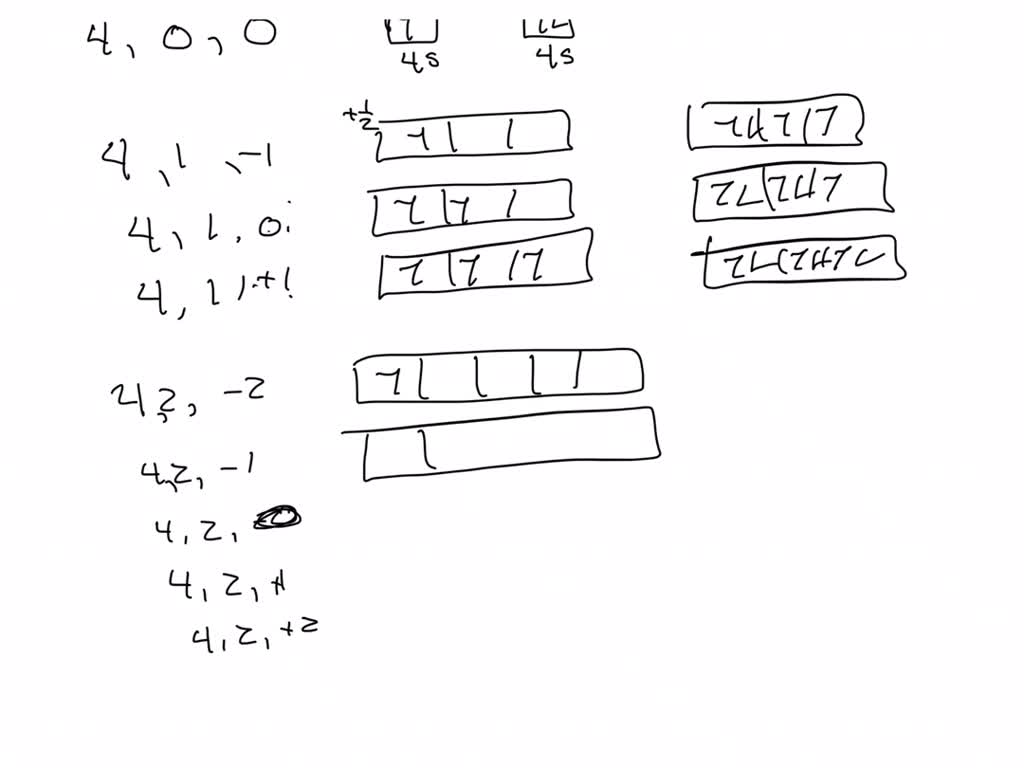 4, 0, 0
4s 4s
+1/2
4, 1, -1
4, 1, 0
4, 1, +1
4 2, -2
4, 2, -1
4, 2, 0
4, 2, +1
4, 2, +2